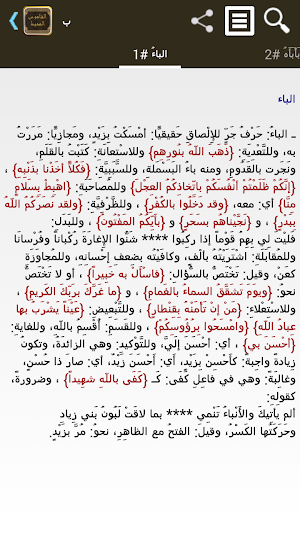 القاموس المحيط
ب
الباءُ #1
بَأبَأهُ #2
الباء
ــ الباءُ: حَرْفُ جَرٍّ للإِلْصاقِ حَقيقيّاً: أمْسَكْتُ بِزَيْدٍ، ومَجازِيّاً: مَرَرْتُ
به، وللتَّعْدِيَةِ: {ذَهَبَ اللّهُ بِنُورِهِم} وللاسْتِعَانَةِ: كَتَبْتُ بالقَلَمِ،
ونَجَرْتُ بالقَدُومِ، ومنه باءُ البَسْمَلَةِ، وللسَّبَبِيَّةِ: {فَكُلاًّ أخَذْنا بذَنْبِه} ،
{إنَّكُمْ ظَلَمْتُمْ أنْفُسَكُمْ باتِّخاذِكُمُ العِجْلَ} وللمُصاحَبَةِ: {اهْبِطْ بسلامٍ
مِنَّا} أي: معه، {وقد دَخَلُوا بالكُفْرِ} ، وللظَّرْفِيَّةِ: {ولقد نَصَرَكُمُ اللّهُ
بِبَدْرٍ} و {نَجَّيْناهُم بِسَحَرٍ} و {بأَيِّكُمُ المَفْتُونُ} ، وللبَدَلِ:
فَلَيْتَ لي بِهِمِ قَوْماً إذا رَكِبُوا **** شَنُّوا الإِغارَةَ رُكْباناً وفُرْساناً
وللمُقابَلَةِ: اشْتَرَيْتُهُ بأَلْفٍ، وكافَيْتُه بضِعْفِ إحْسانِه، وللمُجاوَزَةِ
كعَنْ، وقيلَ: تَخْتَصُّ بالسُّؤالِ: {فاسْأَلْ به خَبيراً} ، أو لا تَخْتَصُّ
نحوُ: {ويومَ تَشَقَّقُ السماءُ بالغَمامِ} ، و {ما غَرَّكَ بِرَبِّكَ الكَريمِ} ،
وللاسْتِعلاءِ: {مَنْ إنْ تَأْمَنْهُ بِقِنْطارٍ} ، وللتَّبْعيضِ: {عَيْناً يَشْرَبُ بها
عِبادُ اللّهِ} {وامْسَحُوا بِرُؤُوسِكُمْ} ، وللقَسَمِ: أُقْسِمُ باللّهِ، وللغايَةِ:
{أحْسَنَ بي} ، أي: أحْسَنَ إلَيَّ، وللتَّوْكيدِ: وهي الزائدةُ، وتكونُ
زِيادةً واجِبةً: كأَحْسِنْ بِزَيْدٍ، أي: أحْسَنَ زَيْدٌ، أي: صارَ ذا حُسْنٍ،
وغالبَةً: وهي في فاعِلِ كَفَى: كـ {كَفَى باللّهِ شَهِيداً} ، وضرورةً،
كقولِه:
ألم يَأْتِيكَ والأَنْباءُ تَنْمِي **** بما لاقَتْ لَبُونُ بَنِي زِيادِ
وحَرَكَتُها الكَسْرُ، وقيلَ: الفتحُ مع الظاهِرِ، نحوُ: مُرَّ بِزَيْدٍ.